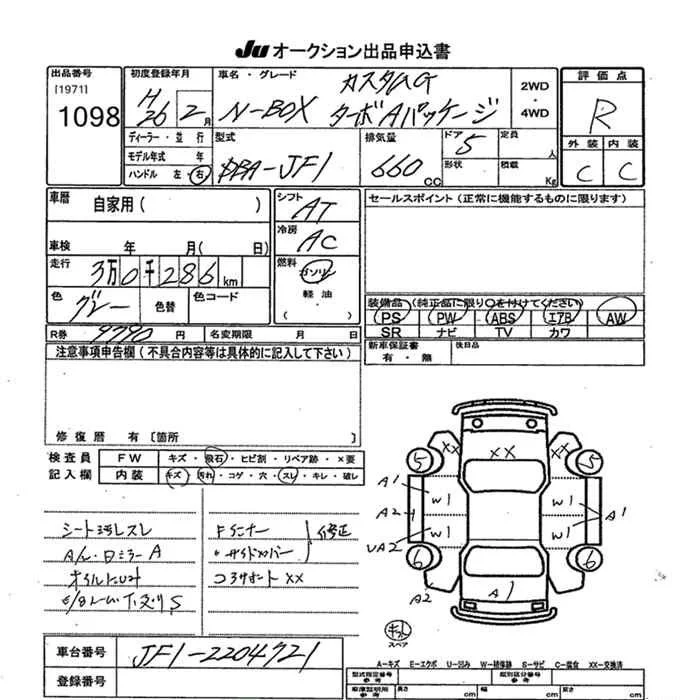 Ju オークション出品申込書
出品番号
[1971]
1098
初度登録年月
H26 2月
車名・グレード
N-BOX カスタムG
ターボAパッケージ
2WD
・
4WD
評価点
R
外装 内装
C C
ディーラー・並行
モデル年式 年
ハンドル 左・右
型式
DBA-JF1
排気量
660 CC
ドア 5
形状
定員 人
積載 Kg
車歴
自家用( )
車検 年 月( 日)
走行
3万0千286km
色 グレー
色替
色コード
シフト
AT
冷房
AC
燃料
ガソリン
軽油
( )
セールスポイント(正常に機能するものに限ります)
装備品(純正品に限り○を付けてください)
PS PW ABS エアB AW
SR ナビ TV カワ
R券 9790 円 名変期限 月 日
新車保証書
有・無
後日品
注意事項申告欄(不具合内容等は具体的に記入して下さい)
修復歴 有〔箇所 〕
検査員
記入欄
FW キズ・飛石・ヒビ割・リペア跡・×要
内装 キズ・汚れ・コゲ・穴・スレ・キレ・破レ
シート汚レスレ
A/L・ロミラーA
オイルにじみ
Fインナー
〃サイドメンバー
修正
コアサポートXX
XX XX XX
5 5
A1 W1 W1
A2 A1
UA2 W1 W1
6 6
A2 A1
スペア
A-キズ E-エクボ U-凹み W-補修跡 S-サビ C-腐食 XX-交換済
車台番号 JF1-2204721
登録番号
型式指定番号 参考
類別区分番号 参考
車庫証明用 参考
長さ cm 幅 cm 高さ cm